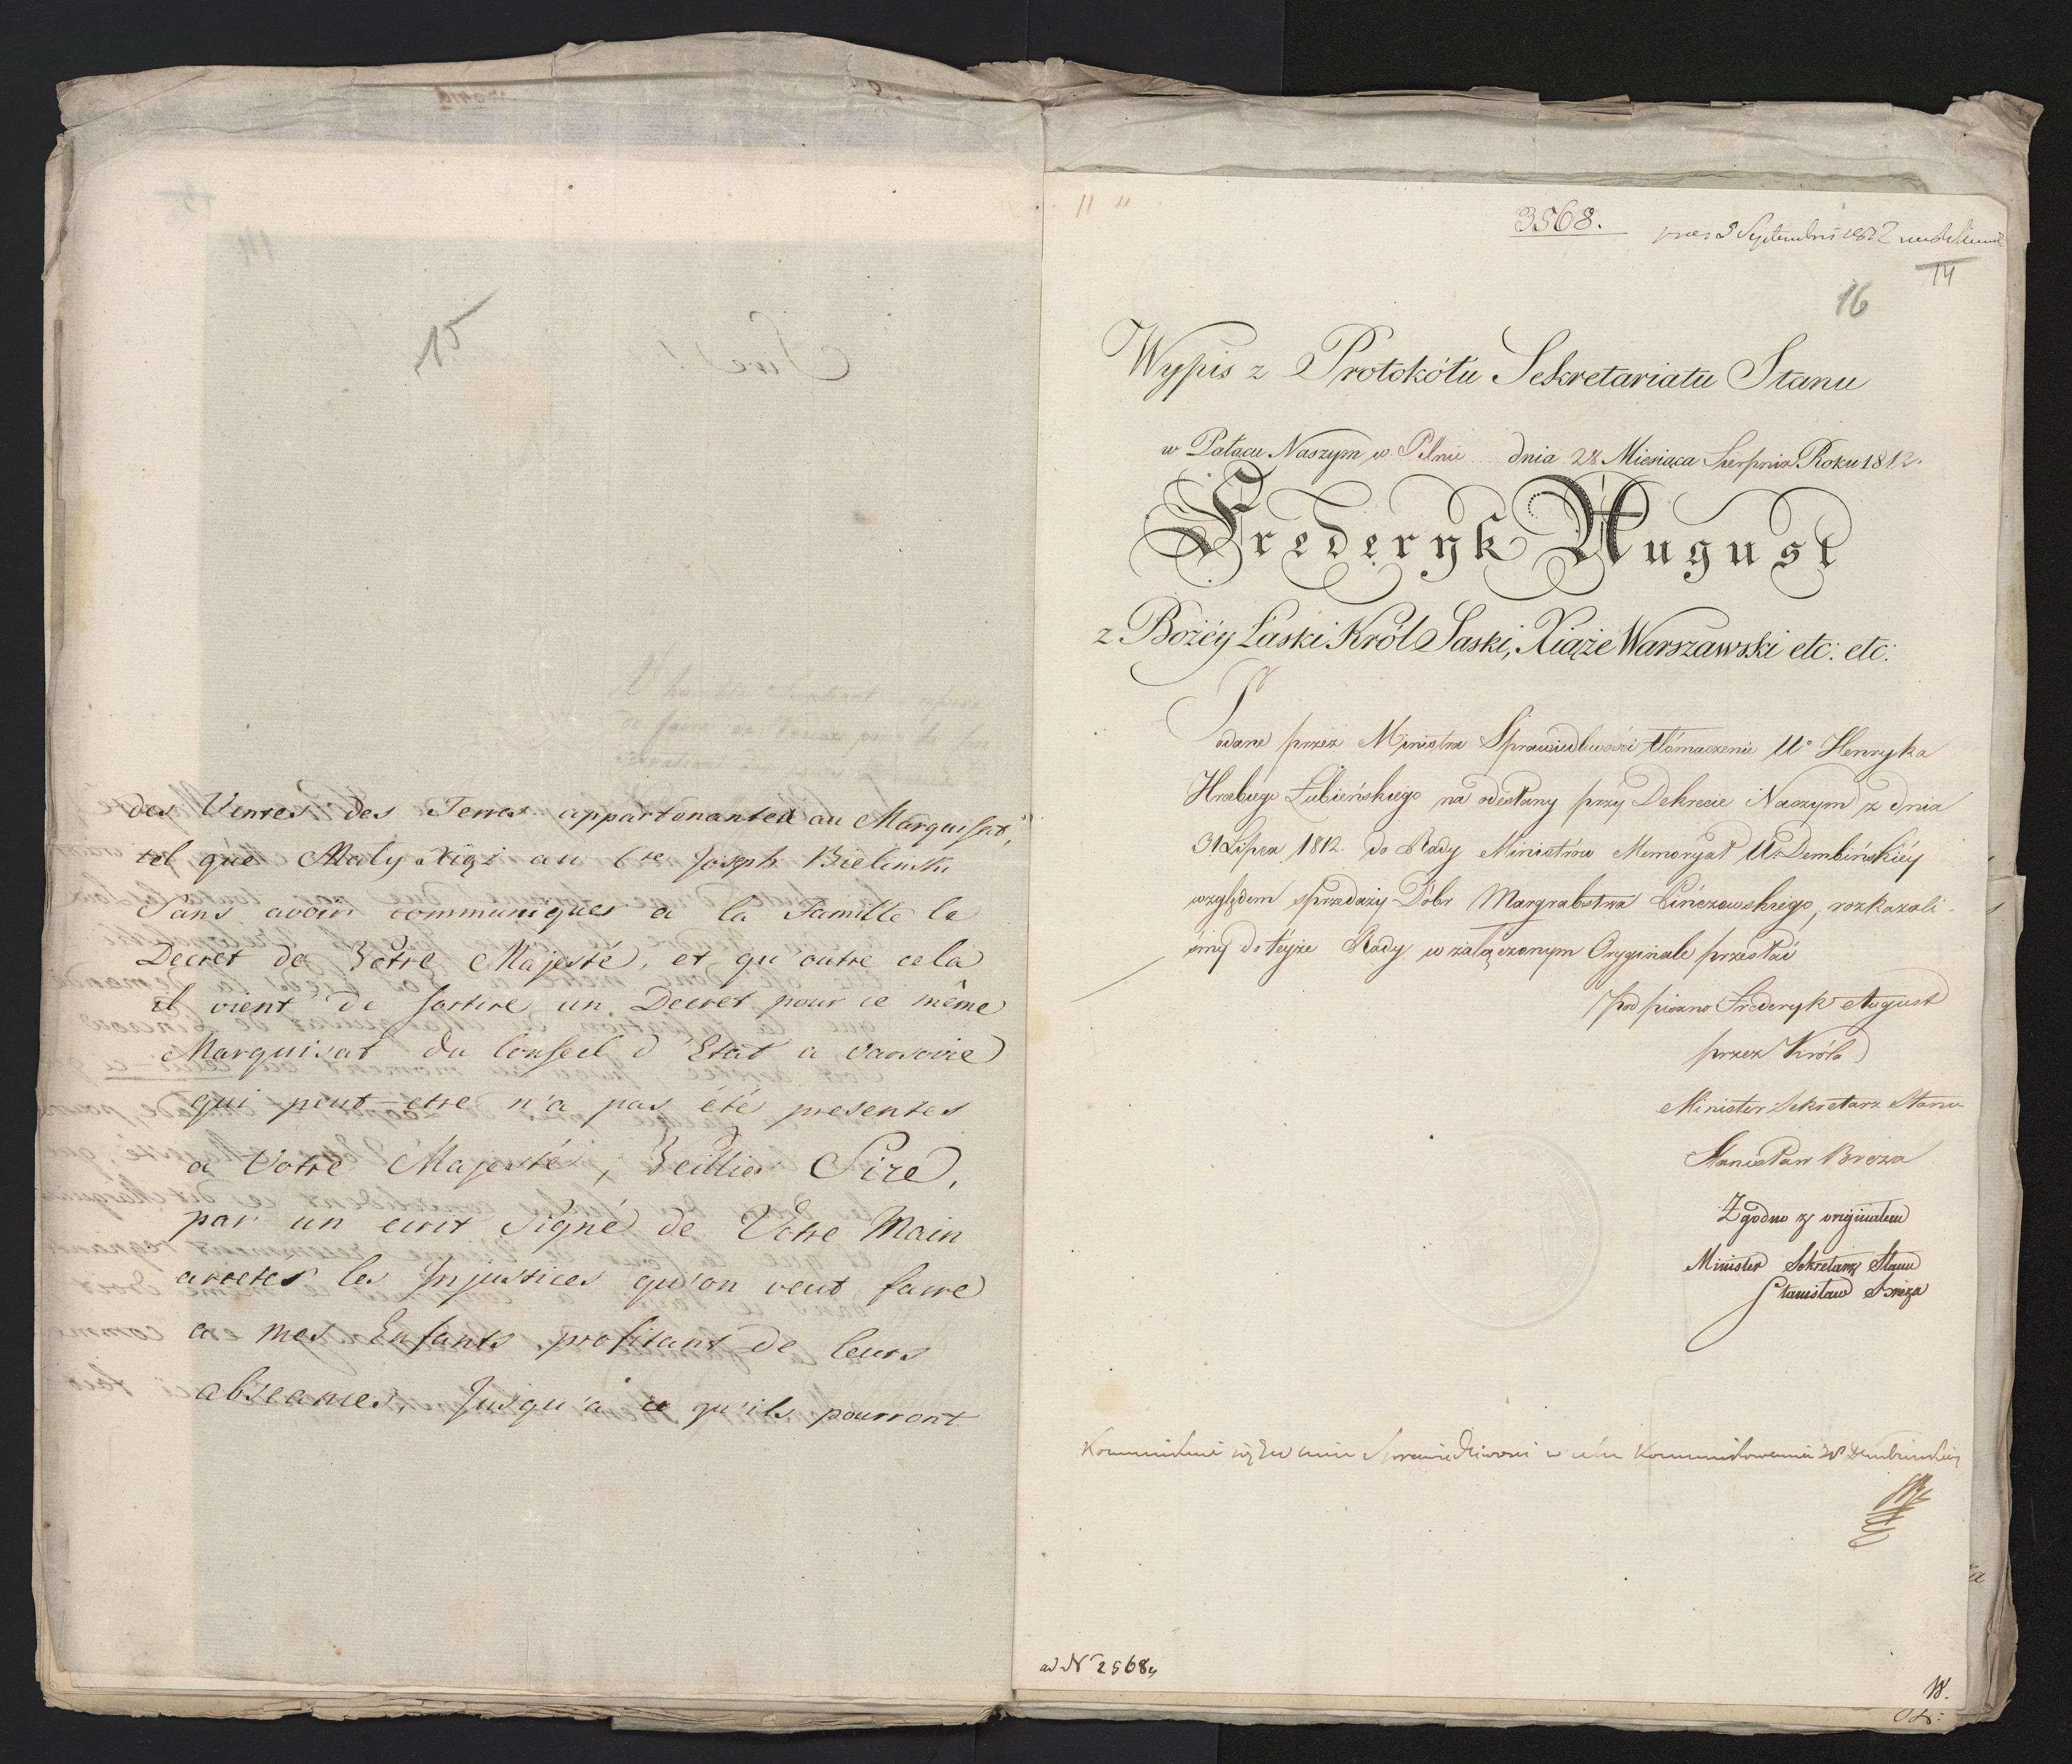 15
des Ventes des Terres appartenantes au Marquisat,
tel que Maly Xigi au Cte Joseph Bielinski
Sans avoir communiques a la Famille le
Decret de Votre Majesté, et qu'outre cela
il vient de sortire un Decret pour ce même
Marquisat du Conseil d'Etat a Varsovie
qui peut-etre n'a pas été presentes
a Votre Majesté; Veillies Sire,
par un ecrit Signé de Votre Main
arretés les Injustices qu'on veut faire
a mes Enfants profitant de leurs
abseances, Jusqu'a ce qu'ils pourront
3568.
pres 5 Septembris 1812
14
16
Wypis z Protokółu Sekretariatu Stanu
w Pałacu Naszym w Pilnie dnia 28 Miesiąca Sierpnia Roku 1812.
Frederyk August
z Bożéy Łaski Król Saski, Xiąże Warszawski etc: etc:
Podane przez Ministra Sprawiedliwości tłómaczenie Ur Henryka
Hrabiego Łubieńskiego na odesłany przy Dekrecie Naszym z dnia
31 Lipca 1812. do Rady Ministrów Memoryał Ur. Dembińskiéy
względem sprzedaży Dóbr Margrabstwa Pińczowskiego, rozkazali-
śmy do téyże Rady w załączonym Oryginale przesłać
podpisano Frederyk August
przez Króla
Minister Sekretarz Stanu
Stanisław Breza
Zgodno z originałem
Minister Sekretarz Stanu
Stanisław Breza
Sprawiedliwosci w celu Kommunikowania Dembinskiey
ad Nr 2568
W.